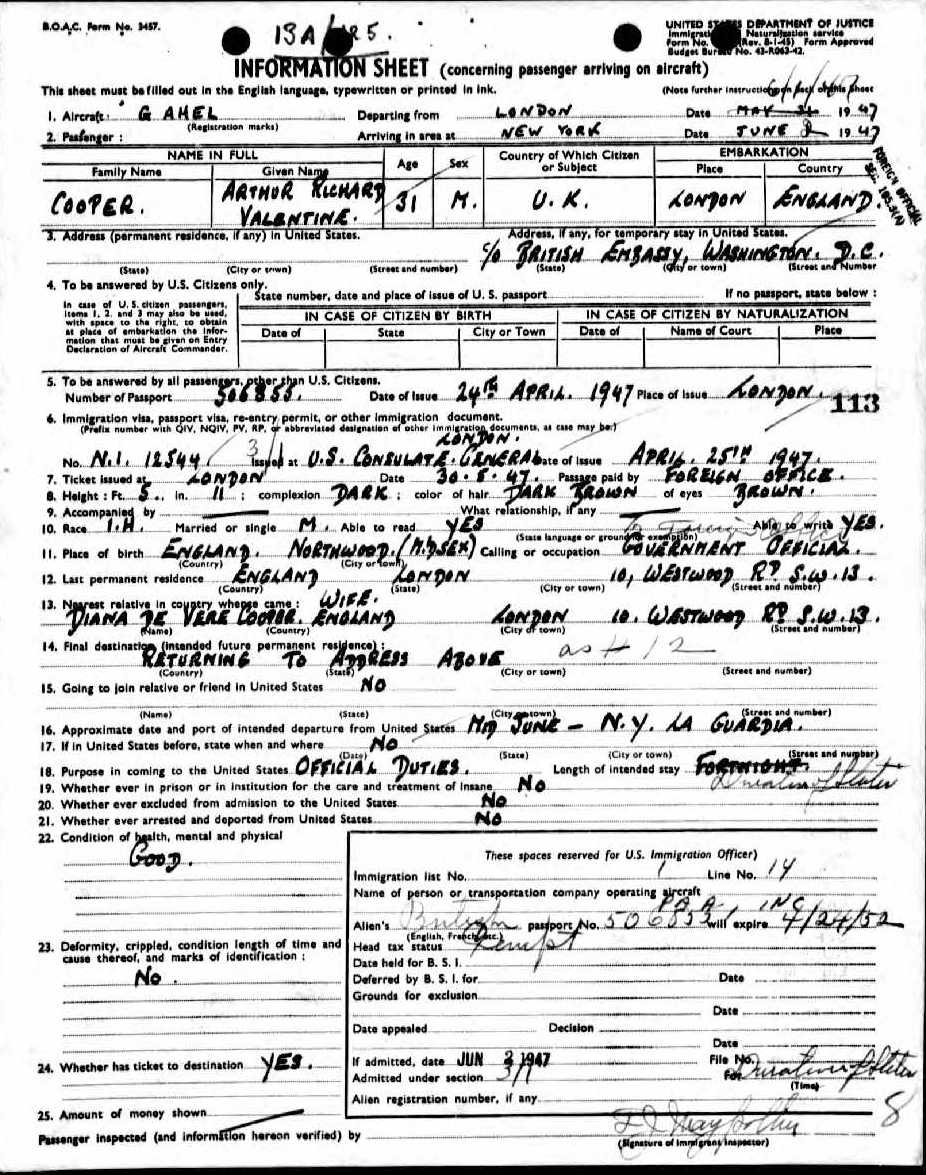 B.O.A.C. Form No. 3457.
13A/125.
UNITED STATES DEPARTMENT OF JUSTICE
Immigration Naturalization service
Form No. (Rev. 8-1-45) Form Approved
Budget Bureau No. 43-R063-42.
INFORMATION SHEET (concerning passenger arriving on aircraft)
This sheet must be filled out in the English language, typewritten or printed in ink.
(Note further instructions on back of this sheet
1. Aircraft: G AHEL Departing from LONDON Date MAY 31 1947
(Registration marks)
2. Passenger: Arriving in area at NEW YORK Date JUNE 2 1947
FOREIGN OFFICIAL
SEC.
NAME IN FULL Age Sex Country of Which Citizen or Subject EMBARKATION
Family Name Given Name Place Country
COOPER. ARTHUR RICHARD VALENTINE. 31 M. U.K. LONDON ENGLAND.
3. Address (permanent residence, if any) in United States. Address, if any, for temporary stay in United States.
c/o BRITISH EMBASSY, WASHINGTON. D.C.
(State) (City or town) (Street and number) (State) (City or town) (Street and Number
4. To be answered by U.S. Citizens only.
State number, date and place of issue of U. S. passport If no passport, state below :
In case of U. S. citizen passengers, items 1, 2, and 3 may also be used, with space to the right, to obtain at place of embarkation the information that must be given on Entry Declaration of Aircraft Commander.
IN CASE OF CITIZEN BY BIRTH IN CASE OF CITIZEN BY NATURALIZATION
Date of State City or Town Date of Name of Court Place
5. To be answered by all passengers, other than U.S. Citizens.
Number of Passport 506855. Date of Issue 24TH APRIL. 1947 Place of Issue LONDON.
113
6. Immigration visa, passport visa, re-entry permit, or other immigration document.
(Prefix number with QIV, NQIV, PV, RP, or abbreviated designation of other immigration documents, as case may be:)
LONDON.
No. N.I. 12544 3(1) Issued at U.S. CONSULATE. GENERAL Date of issue APRIL. 25TH 1947.
7. Ticket issued at LONDON Date 30.5.47. Passage paid by FOREIGN OFFICE
8. Height : Ft. 5. in. 11 ; complexion DARK ; color of hair DARK BROWN of eyes BROWN.
9. Accompanied by What relationship, if any
10. Race I.H. Married or single M. Able to read YES Able to write YES.
(State language or ground for exemption)
11. Place of birth ENGLAND. NORTHWOOD. (MIDSEX) Calling or occupation GOVERNMENT OFFICIAL.
(Country) (City or town)
12. Last permanent residence ENGLAND LONDON 10, WESTWOOD RD. S.W.13.
(Country) (State) (City or town) (Street and number)
13. Nearest relative in country whence came : WIFE.
DIANA DE VERE COOPER. ENGLAND LONDON 10. WESTWOOD RD. S.W.13
(Name) (Country) (City or town) (Street and number)
14. Final destination (intended future permanent residence) :
RETURNING TO ADDRESS ABOVE as # 12
(Country) (State) (City or town) (Street and number)
15. Going to join relative or friend in United States NO
(Name) (State) (City or town) (Street and number)
16. Approximate date and port of intended departure from United States MID JUNE - N.Y. LA GUARDIA.
17. If in United States before, state when and where NO
(Date) (State) (City or town) (Street and number)
18. Purpose in coming to the United States OFFICIAL DUTIES. Length of intended stay FORTNIGHT.
Duration of Status
19. Whether ever in prison or in institution for the care and treatment of insane NO
20. Whether ever excluded from admission to the United States NO
21. Whether ever arrested and deported from United States NO
22. Condition of health, mental and physical
GOOD.
23. Deformity, crippled, condition length of time and cause thereof, and marks of identification :
NO.
24. Whether has ticket to destination YES.
25. Amount of money shown
These spaces reserved for U.S. Immigration Officer)
Immigration list No. 1 Line No. 14
Name of person or transportation company operating aircraft
P.A.A. INC
Alien's British passport No. will expire 4/24/52
(English, French, etc.)
Head tax status Exempt
Date held for B. S. I.
Deferred by B. S. I. for Date
Grounds for exclusion
Date
Date appealed Decision
Date
If admitted, date JUN 2 1947 File No.
Admitted under section 3/1 For Duration of Status
(Time)
Alien registration number, if any
8
Passenger inspected (and information hereon verified) by
(Signature of Immigrant Inspector)